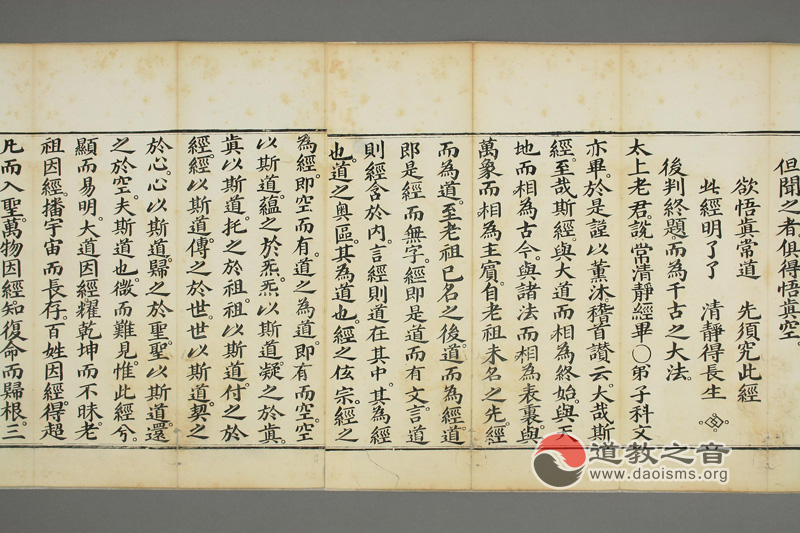 但聞之者俱得悟眞空。
欲悟眞常道　先須究此經
此經明了了　清靜得長生
後判終題而為千古之大法。
太上老君說常清靜經畢〇弟子科文
亦畢。於是謹以薰沐。稽首讚云。大哉斯
經。至哉斯經。與大道而相為終始。與天
地而相為古今。與諸法而相為表裏。與
萬象而相為主賓。自老祖未名之先。經
而為道。至老祖已名之後。道而為經。道
即是經而無字。經即是道而有文。言道
則經含於內。言經則道在其中。其為經
也。道之奧區。其為道也。經之伭宗。經之
為經。即空而有。道之為道。即有而空。空
以斯道。蘊之於炁。炁以斯道。凝之於眞。
眞以斯道。托之於祖。祖以斯道。付之於
經。經以斯道。傳之於世。世以斯道。契之
於心。心以斯道。歸之於聖。聖以斯道。還
之於空。夫斯道也。微而難見。惟此經兮。
顯而易明。大道因經。耀乾坤而不昧。老
祖因經。播宇宙而長存。百姓因經。得超
凡而入聖。萬物因經。知復命而歸根。三
道教之音
www.daoisms.org